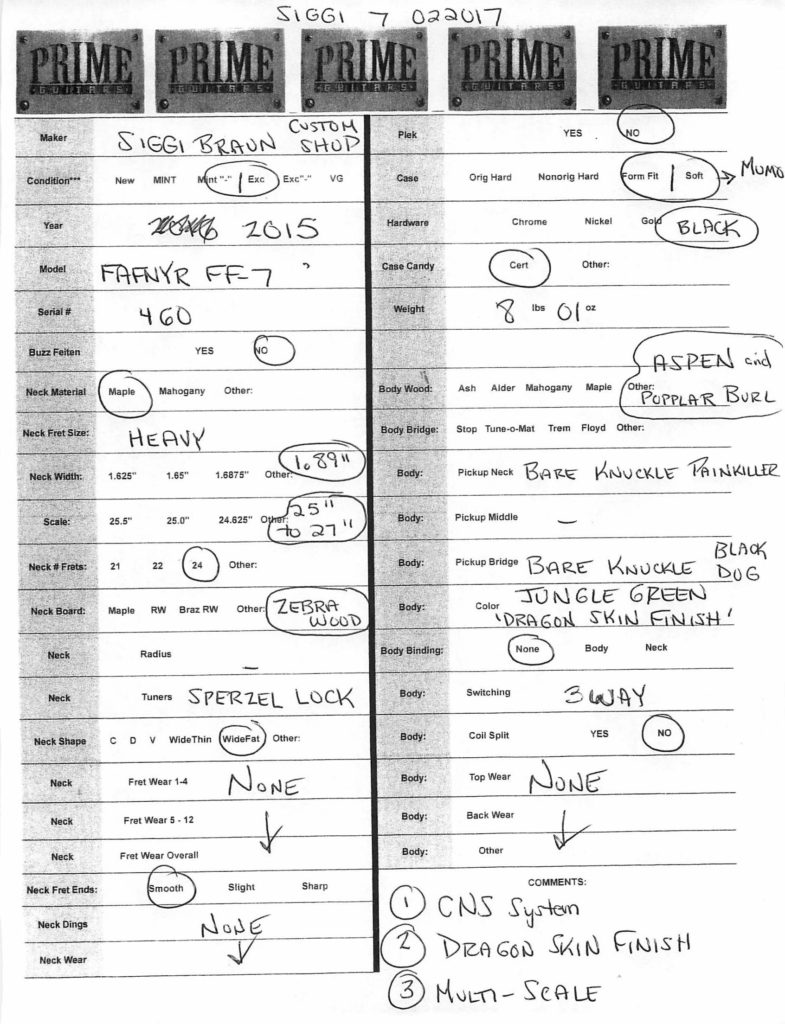 SIGGI 7 022017
PRIME GUITARS PRIME GUITARS PRIME GUITARS PRIME GUITARS PRIME GUITARS
Maker SIGGI BRAUN CUSTOM SHOP
Condition*** New MINT Mint "-" Exc Exc"-" VG
Year 2015
Model FAFNYR FF-7
Serial # 460
Buzz Feiten YES NO
Neck Material Maple Mahogany Other:
Neck Fret Size: HEAVY
Neck Width: 1.625" 1.65" 1.6875" Other: 1.89"
Scale: 25.5" 25.0" 24.625" Other: 25" to 27"
Neck # Frets: 21 22 24 Other:
Neck Board: Maple RW Braz RW Other: ZEBRA WOOD
Neck Radius —
Neck Tuners SPERZEL LOCK
Neck Shape C D V WideThin WideFat Other:
Neck Fret Wear 1-4 NONE
Neck Fret Wear 5 - 12
Neck Fret Wear Overall
Neck Fret Ends: Smooth Slight Sharp
Neck Dings NONE
Neck Wear
Plek YES NO
Case Orig Hard Nonorig Hard Form Fit Soft → MUMO
Hardware Chrome Nickel Gold BLACK
Case Candy Cert Other:
Weight 8 lbs 01 oz
Body Wood: Ash Alder Mahogany Maple Other: ASPEN and POPPLAR BURL
Body Bridge: Stop Tune-o-Mat Trem Floyd Other:
Body: Pickup Neck BARE KNUCKLE PAINKILLER
Body: Pickup Middle —
Body: Pickup Bridge BARE KNUCKLE BLACK DOG
Body: Color JUNGLE GREEN 'DRAGON SKIN FINISH'
Body Binding: None Body Neck
Body: Switching 3 WAY
Body: Coil Split YES NO
Body: Top Wear NONE
Body: Back Wear
Body: Other
COMMENTS:
1 CNS System
2 DRAGON SKIN FINISH
3 MULTI-SCALE